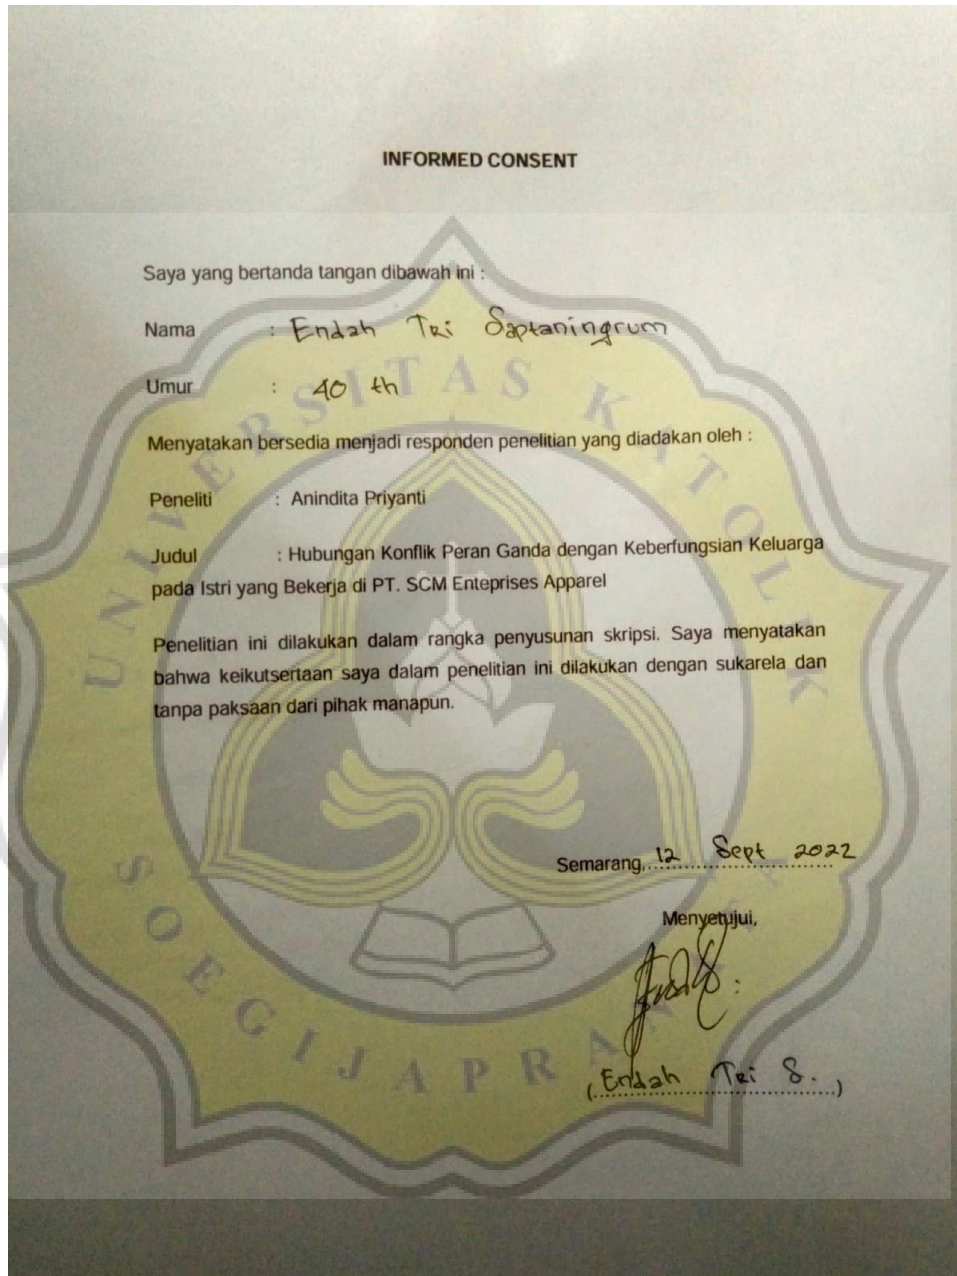 INFORMED CONSENT
Saya yang bertanda tangan dibawah ini :
Nama : Endah Tri Saptaningrum
Umur : 40 th
Menyatakan bersedia menjadi responden penelitian yang diadakan oleh :
Peneliti : Anindita Priyanti
Judul : Hubungan Konflik Peran Ganda dengan Keberfungsian Keluarga
pada Istri yang Bekerja di PT. SCM Enteprises Apparel
Penelitian ini dilakukan dalam rangka penyusunan skripsi. Saya menyatakan
bahwa keikutsertaan saya dalam penelitian ini dilakukan dengan sukarela dan
tanpa paksaan dari pihak manapun.
Semarang, 12 Sept 2022
Menyetujui,
(Endah Tri S.)
UNIVERSITAS KATOLIK
SOEGIJAPRANATA